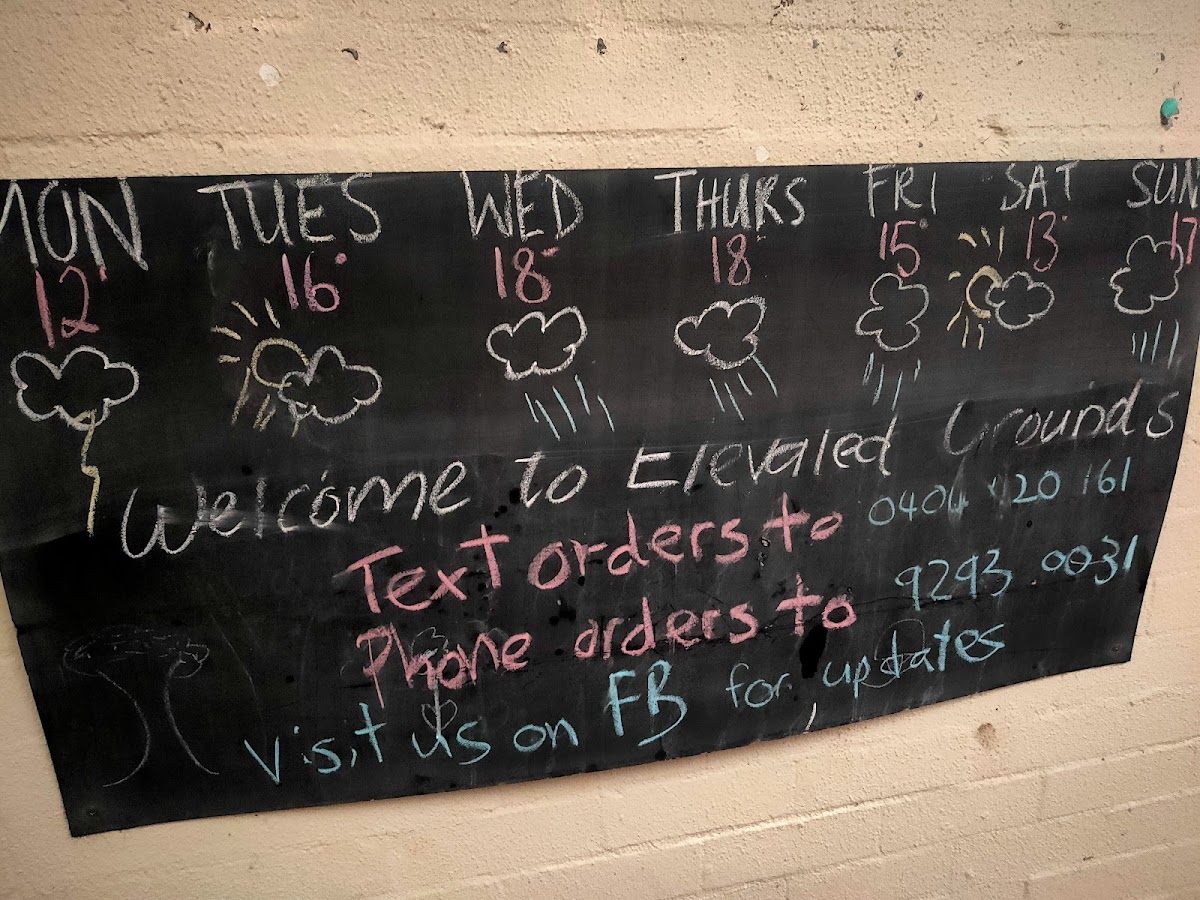 MON TUES WED THURS FRI SAT SUN
12° 16° 18° 18° 15° 13° 17
Welcome to Elevated Grounds
Text orders to 0404 20 161
Phone orders to 9293 0031
visit us on FB for updates